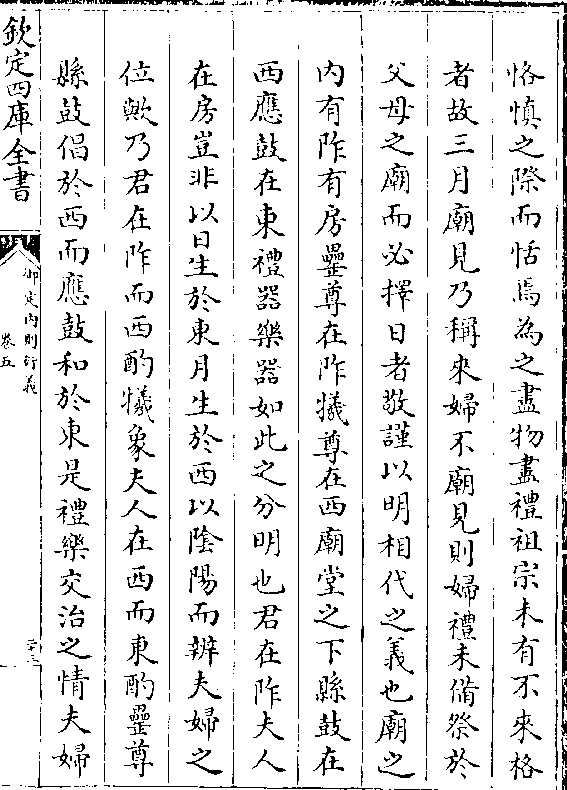 恪慎之際而恬焉為之盡物盡禮祖宗未有不來格
者故三月廟見乃稱來婦不廟見則婦禮未備祭於
父母之廟而必擇日者敬謹以明相代之義也廟之
内有阼有房罍尊在阼犧尊在西廟堂之下縣鼓在
西應鼓在東禮器樂器如此之分明也君在阼夫人
在房豈非以日生於東月生於西以隂陽而辨夫婦之
位歟乃君在阼而西酌犧象夫人在西而東酌罍尊
縣鼓倡於西而應鼓和於東是禮樂交治之情夫婦
欽定四庫全書
御定内則衍義
卷五